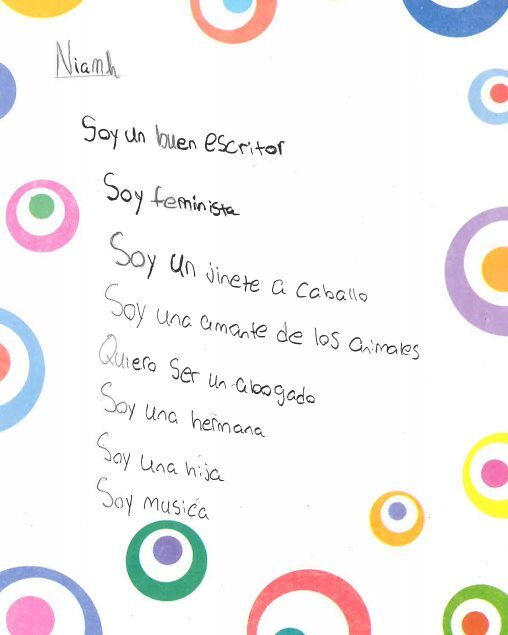 Niamh
Soy un buen escritor
Soy feminista
Soy un jinete a caballo
Soy una amante de los animales
Quiero ser un abogado
Soy una hermana
Soy una hija
Soy musica